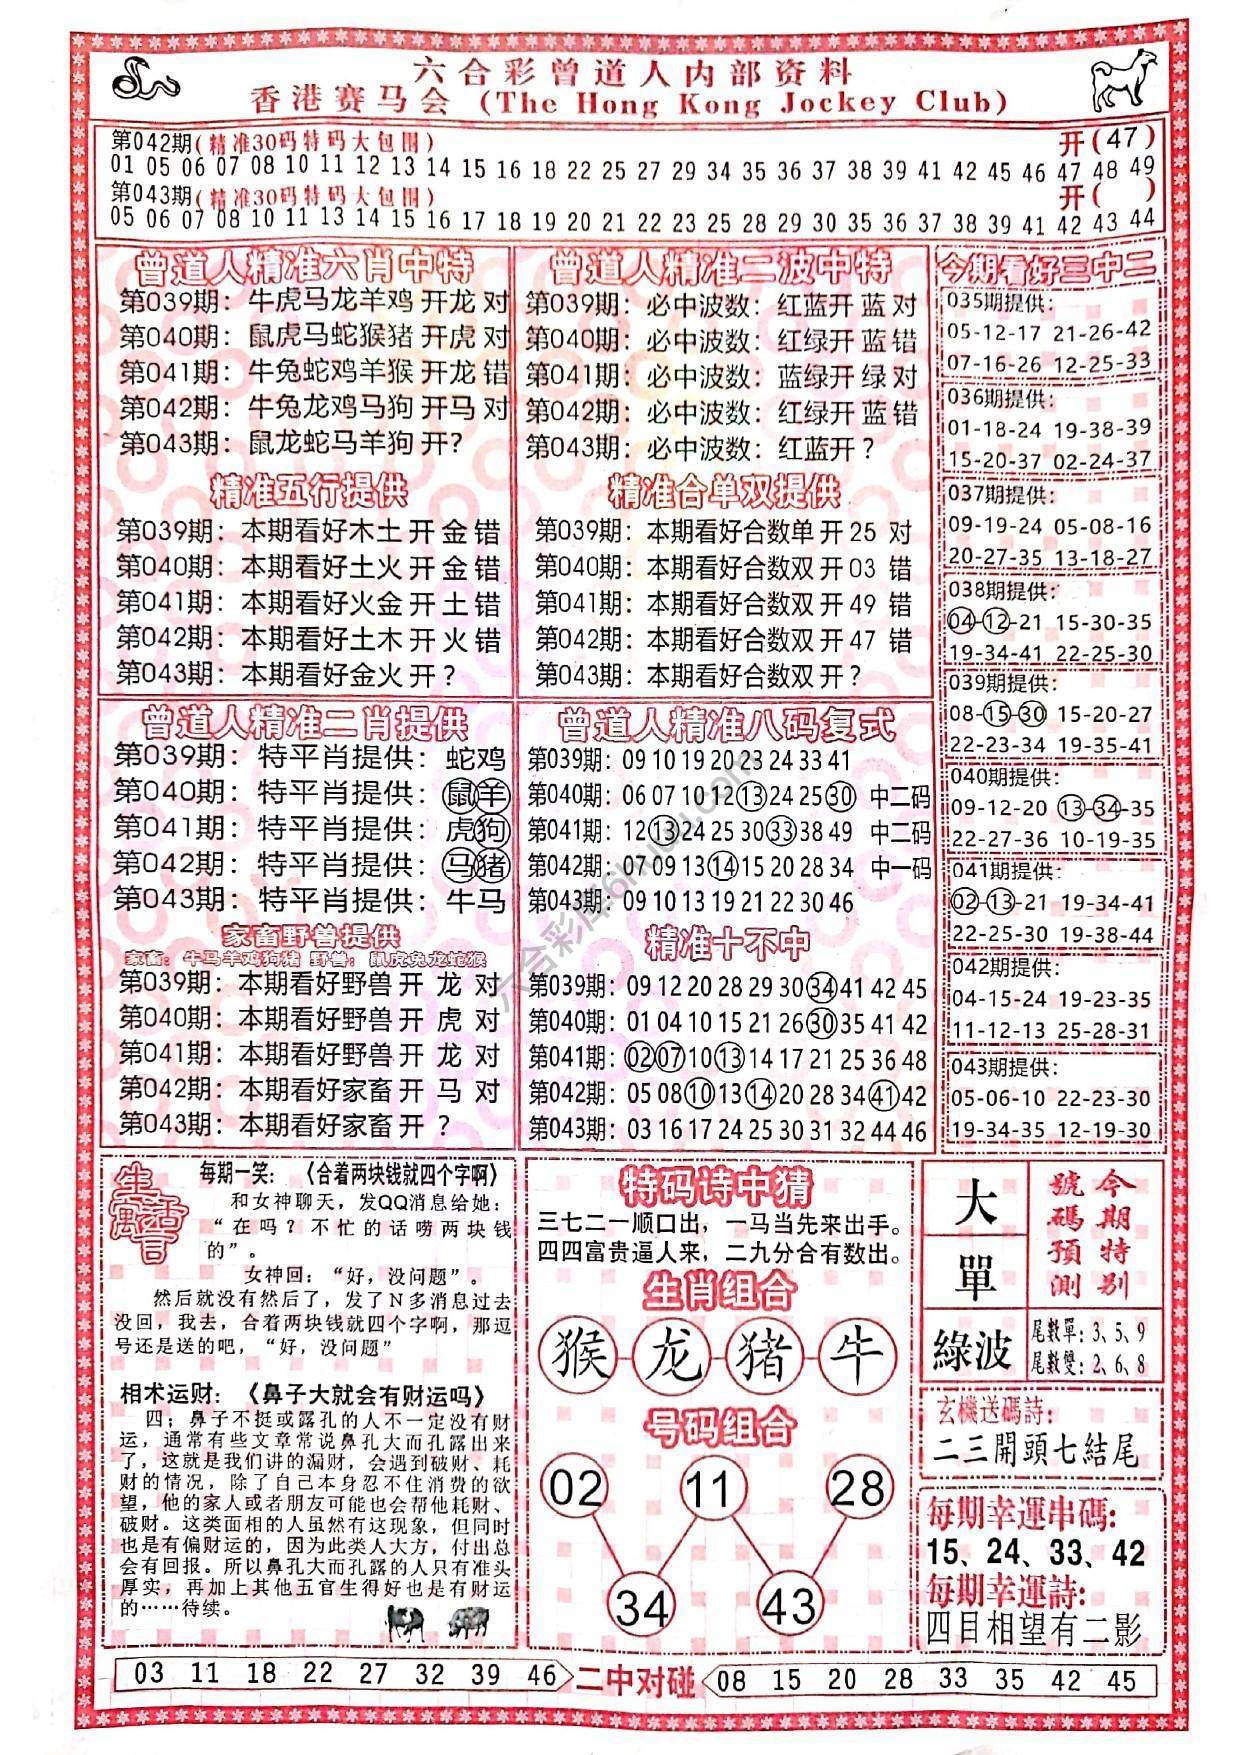 六合彩曾道人内部资料
香港赛马会 (The Hong Kong Jockey Club)
第042期(精准30码特码大包围) 开(47)
01 05 06 07 08 10 11 12 13 14 15 16 18 22 25 27 29 34 35 36 37 38 39 41 42 45 46 47 48 49
第043期(精准30码特码大包围) 开( )
05 06 07 08 10 11 13 14 15 16 17 18 19 20 21 22 23 25 28 29 30 35 36 37 38 39 41 42 43 44
曾道人精准六肖中特
第039期：牛虎马龙羊鸡 开龙 对
第040期：鼠虎马蛇猴猪 开虎 对
第041期：牛兔蛇鸡羊猴 开龙 错
第042期：牛兔龙鸡马狗 开马 对
第043期：鼠龙蛇马羊狗 开?
精准五行提供
第039期：本期看好木土 开 金 错
第040期：本期看好土火 开 金 错
第041期：本期看好火金 开 土 错
第042期：本期看好土木 开 火 错
第043期：本期看好金火 开 ?
曾道人精准二波中特
第039期：必中波数：红蓝开 蓝 对
第040期：必中波数：红绿开 蓝 错
第041期：必中波数：蓝绿开 绿 对
第042期：必中波数：红绿开 蓝 错
第043期：必中波数：红蓝开 ?
精准合单双提供
第039期：本期看好合数单 开 25 对
第040期：本期看好合数双 开 03 错
第041期：本期看好合数双 开 49 错
第042期：本期看好合数双 开 47 错
第043期：本期看好合数双 开 ?
今期看好三中二
035期提供：
05-12-17 21-26-42
07-16-26 12-25-33
036期提供：
01-18-24 19-38-39
15-20-37 02-24-37
037期提供：
09-19-24 05-08-16
20-27-35 13-18-27
038期提供：
04-12-21 15-30-35
19-34-41 22-25-30
039期提供：
08-15-30 15-20-27
22-23-34 19-35-41
040期提供：
09-12-20 13-34-35
22-27-36 10-19-35
041期提供：
02-13-21 19-34-41
22-25-30 19-38-44
042期提供：
04-15-24 19-23-35
11-12-13 25-28-31
043期提供：
05-06-10 22-23-30
19-34-35 12-19-30
曾道人精准二肖提供
第039期：特平肖提供：蛇鸡
第040期：特平肖提供：鼠羊
第041期：特平肖提供：虎狗
第042期：特平肖提供：马猪
第043期：特平肖提供：牛马
家畜野兽提供
家畜：牛马羊鸡狗猪 野兽：鼠虎兔龙蛇猴
第039期：本期看好野兽 开 龙 对
第040期：本期看好野兽 开 虎 对
第041期：本期看好野兽 开 龙 对
第042期：本期看好家畜 开 马 对
第043期：本期看好家畜 开 ?
曾道人精准八码复式
第039期：09 10 19 20 23 24 33 41
第040期：06 07 10 12 13 24 25 30 中二码
第041期：12 13 24 25 30 33 38 49 中二码
第042期：07 09 13 14 15 20 28 34 中一码
第043期：09 10 13 19 21 22 30 46
精准十不中
第039期：09 12 20 28 29 30 34 41 42 45
第040期：01 04 10 15 21 26 30 35 41 42
第041期：02 07 10 13 14 17 21 25 36 48
第042期：05 08 10 13 14 20 28 34 41 42
第043期：03 16 17 24 25 30 31 32 44 46
六合彩库6hkuu.com
生活寓言
每期一笑：《合着两块钱就四个字啊》
和女神聊天，发QQ消息给她：
“在吗？不忙的话唠两块钱
的”。
女神回：“好，没问题”。
然后就没有然后了，发了N多消息过去
没回，我去，合着两块钱就四个字啊，那逗
号还是送的吧，“好，没问题”
相术运财：《鼻子大就会有财运吗》
四；鼻子不挺或露孔的人不一定没有财
运，通常有些文章常说鼻孔大而孔露出来
了，这就是我们讲的漏财，会遇到破财、耗
财的情况，除了自己本身忍不住消费的欲
望，他的家人或者朋友可能也会帮他耗财、
破财。这类面相的人虽然有这现象，但同时
也是有偏财运的，因为此类人大方，付出总
会有回报。所以鼻孔大而孔露的人只有准头
厚实，再加上其他五官生得好也是有财运
的……待续。
特码诗中猜
三七二一顺口出，一马当先来出手。
四四富贵逼人来，二九分合有数出。
生肖组合
猴 龙 猪 牛
号码组合
02 11 28
34 43
大
單
綠波
今期特别
號碼預測
尾數單：3、5、9
尾數雙：2、6、8
玄機送碼詩：
二三開頭七結尾
每期幸運串碼：
15、24、33、42
每期幸運詩：
四目相望有二影
03 11 18 22 27 32 39 46 二中对碰 08 15 20 28 33 35 42 45